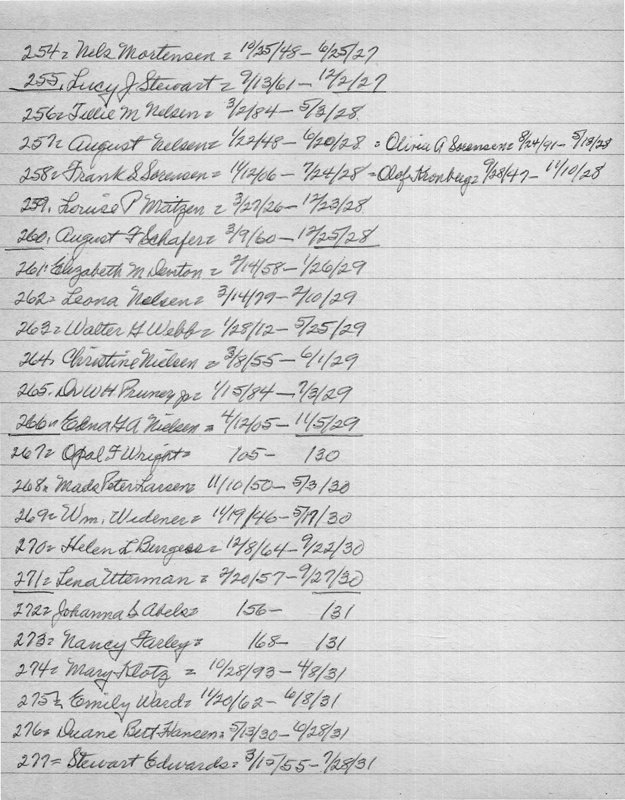 254= Nels Mortensen = 10/25/48 - 6/25/27
255, Lucy J Stewart = 9/13/61 - 12/2/27
256= Tillie M Nelsen = 3/2/84 - 5/3/28
257= August Nelsen = 1/22/48 - 6/20/28 = Olivia A Sorensen = 8/24/91 - 5/13/28
258= Frank S Sorensen = 11/12/06 - 7/24/28 = Olof Kronberg = 9/28/47 - 11/10/28
259, Louise P Matzen = 3/27/26 - 12/23/28
260, August F Schafer = 3/9/60 - 12/25/28
261= Elizabeth M Denton = 2/14/58 - 1/26/29
262= Leona Nelsen = 3/14/79 - 2/10/29
263= Walter G Webb = 1/28/12 - 5/25/29
264, Christine Nielsen = 3/8/55 - 6/1/29
265, Dr W H Pruner Jr = 1/15/84 - 7/3/29
266= Edna G A Nielsen = 4/12/05 - 11/5/29
267= Opal F Wright = /05 - /30
268= Mads Peter Larsen = 11/10/50 - 5/3/30
269= Wm. Widener = 11/19/46 - 5/17/30
270= Helen L Burgess = 12/8/64 - 9/22/30
271= Lena Utterman = 2/20/57 - 9/27/30
272= Johanna S Abels = /56 - /31
273= Nancy Farley = /68 - /31
274= Mary Klotz = 10/28/93 - 4/8/31
275= Emily Ward = 11/20/62 - 6/8/31
276= Duane Bert Hansen = 5/13/30 - 6/28/31
277= Stewart Edwards = 3/15/55 - 7/28/31